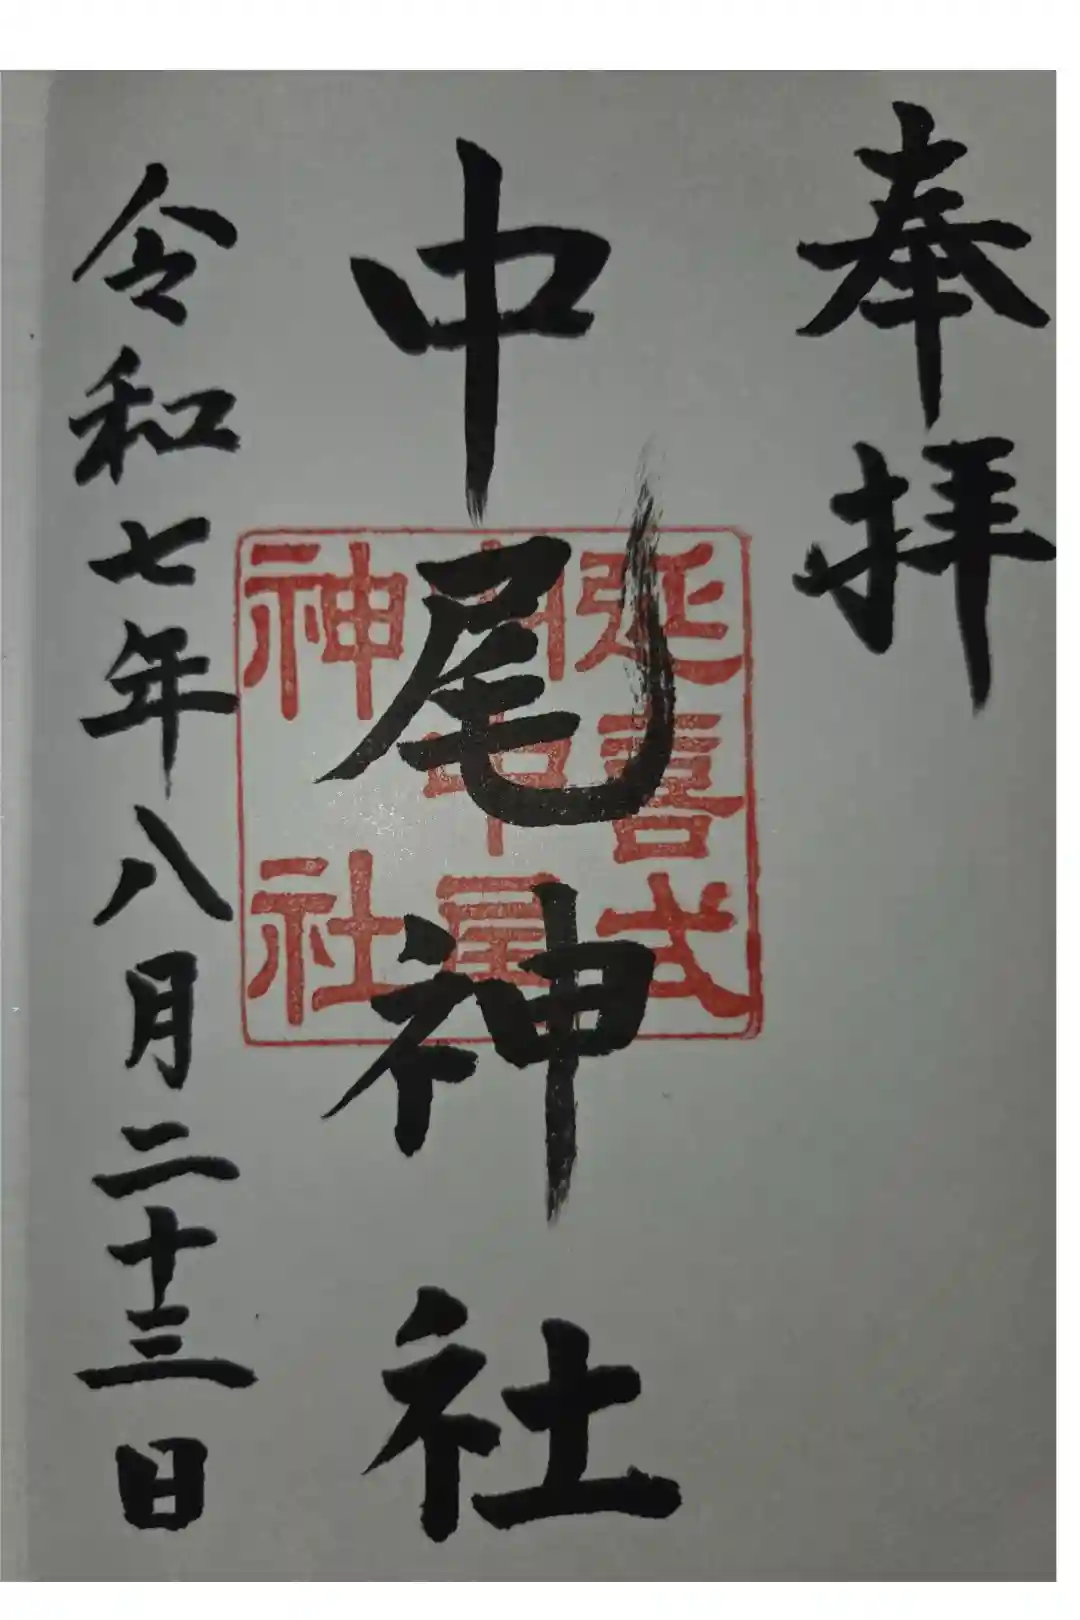 奉拝
中尾神社
延喜式
内中尾
神社
令和七年八月二十三日